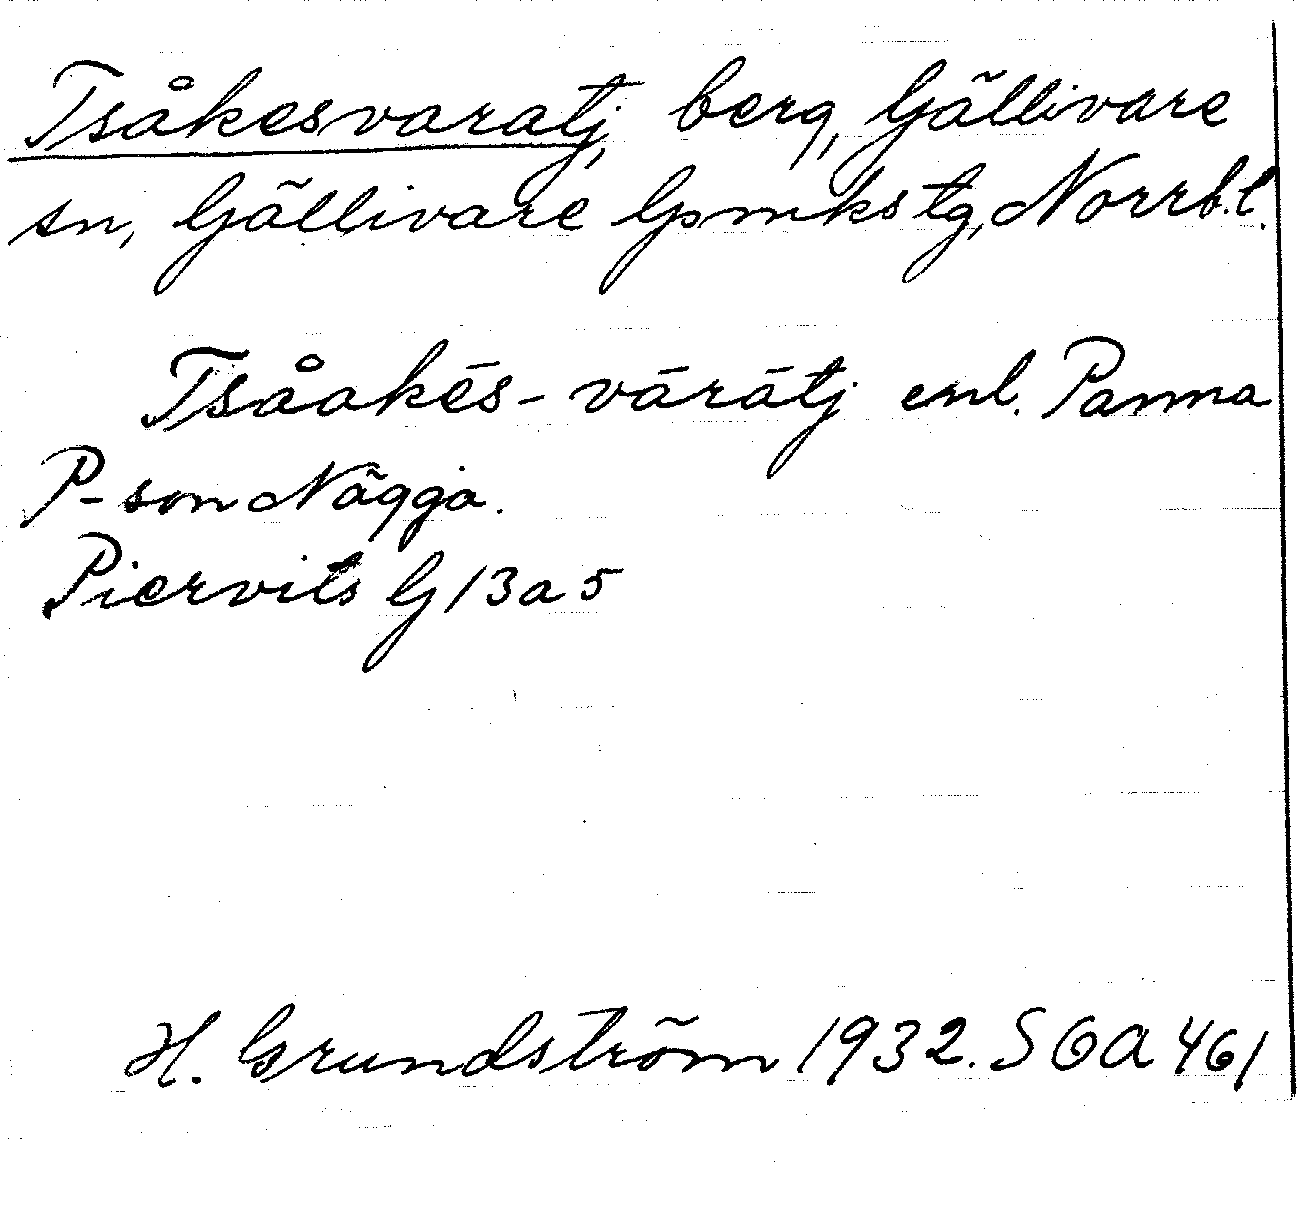 Tsåkesvaratj, berg, Gällivare
sn, Gällivare lpmkstg, Norrb. l.
Tsåakēs-vārātj enl. Panna
P-son Näggo.
Piervits G 13a5
H. Grundström 1932. SOA 461